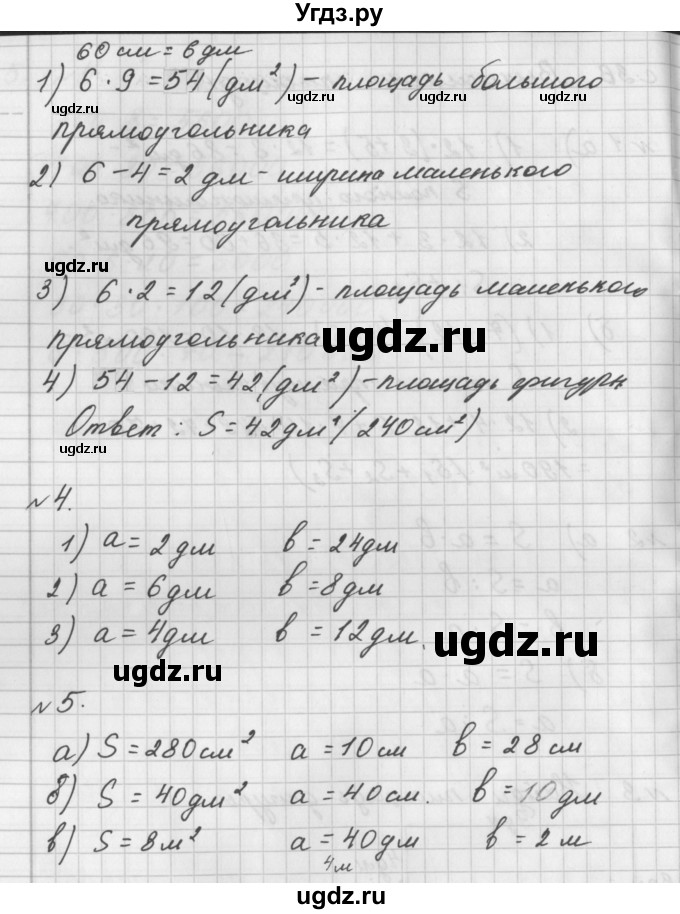 Угдз.ру
60 см = 6 дм
1) 6 · 9 = 54 (дм²) – площадь большого
ugdz.ru ugdz.ru ugdz.ru
прямоугольника
2) 6 – 4 = 2 дм – ширина маленького
ugdz.ru
прямоугольника
ugdz.ru
3) 6 · 2 = 12 (дм²) – площадь маленького
прямоугольника
ugdz.ru
4) 54 – 12 = 42 (дм²) – площадь фигуры
Ответ : S = 42 дм² (240 см²)
ugdz.ru
№ 4.
1) a = 2 дм b = 24 дм
2) a = 6 дм b = 8 дм
3) a = 4 дм b = 12 дм.
ugdz.ru ugdz.ru
№ 5.
а) S = 280 см² a = 10 см b = 28 см
б) S = 40 дм² a = 40 см. b = 10 дм
ugdz.ru
в) S = 8 м² a = 40 дм b = 2 м
4 м
ugdz.ru